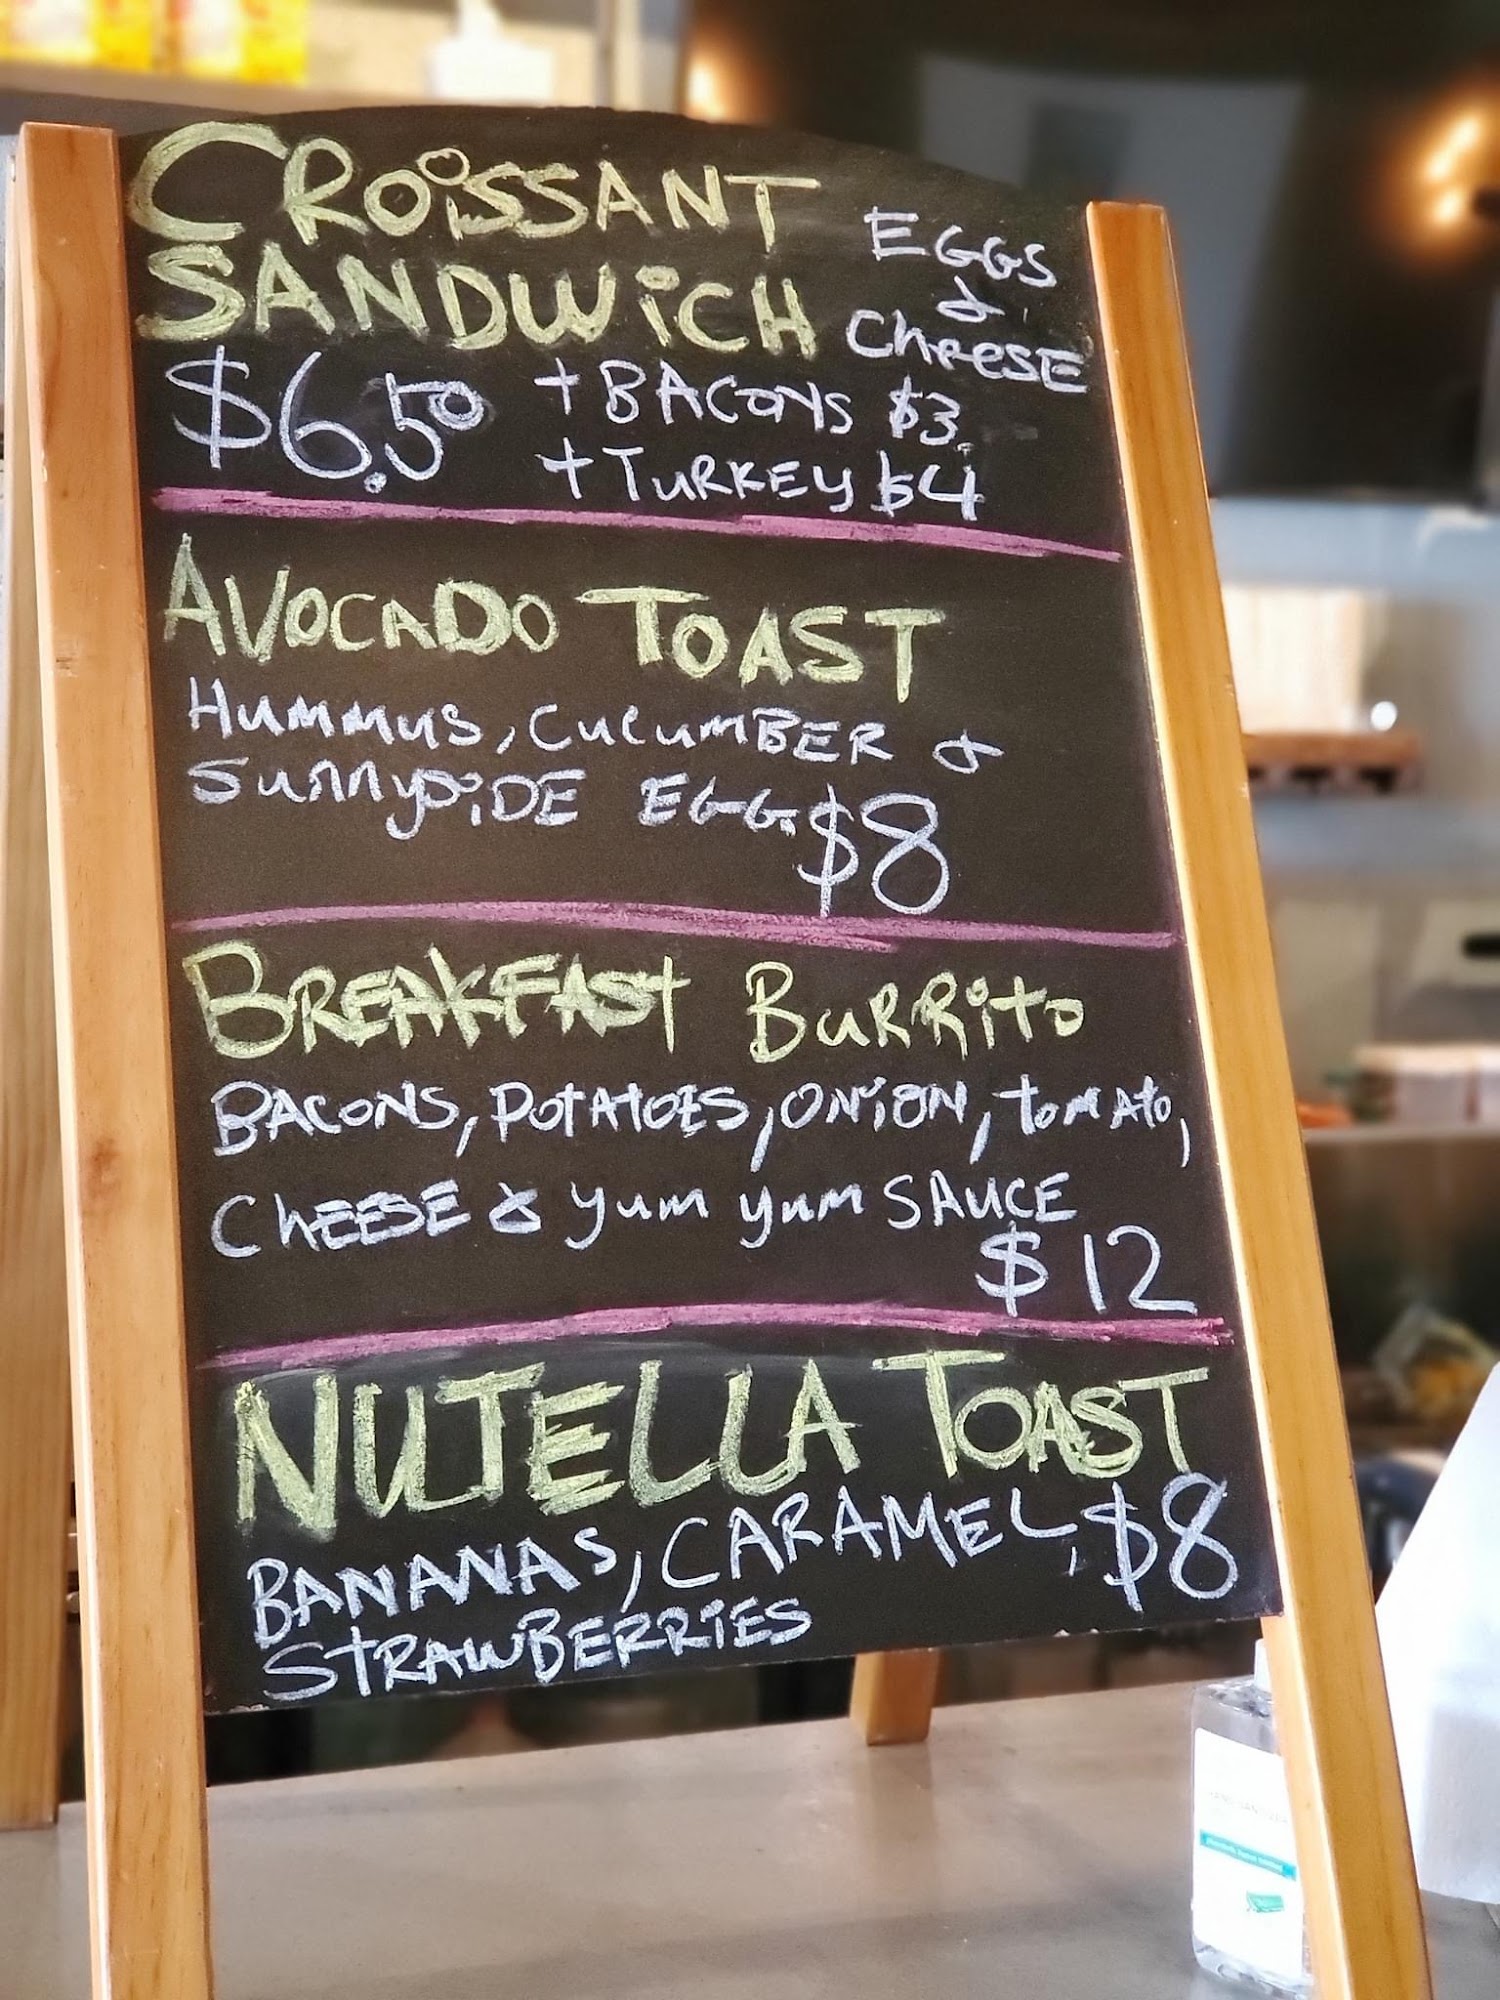 CROISSANT
SANDWICH
EGGS
&
CHEESE
$6.50
+ BACONS $3
+ TURKEY $4
AVOCADO TOAST
HUMMUS, CUCUMBER &
SUNNYSIDE EGG. $8
BREAKFAST BURRITO
BACONS, POTATOES, ONION, TOMATO,
CHEESE & YUM YUM SAUCE
$12
NUTELLA TOAST
BANANAS, CARAMEL, $8
STRAWBERRIES